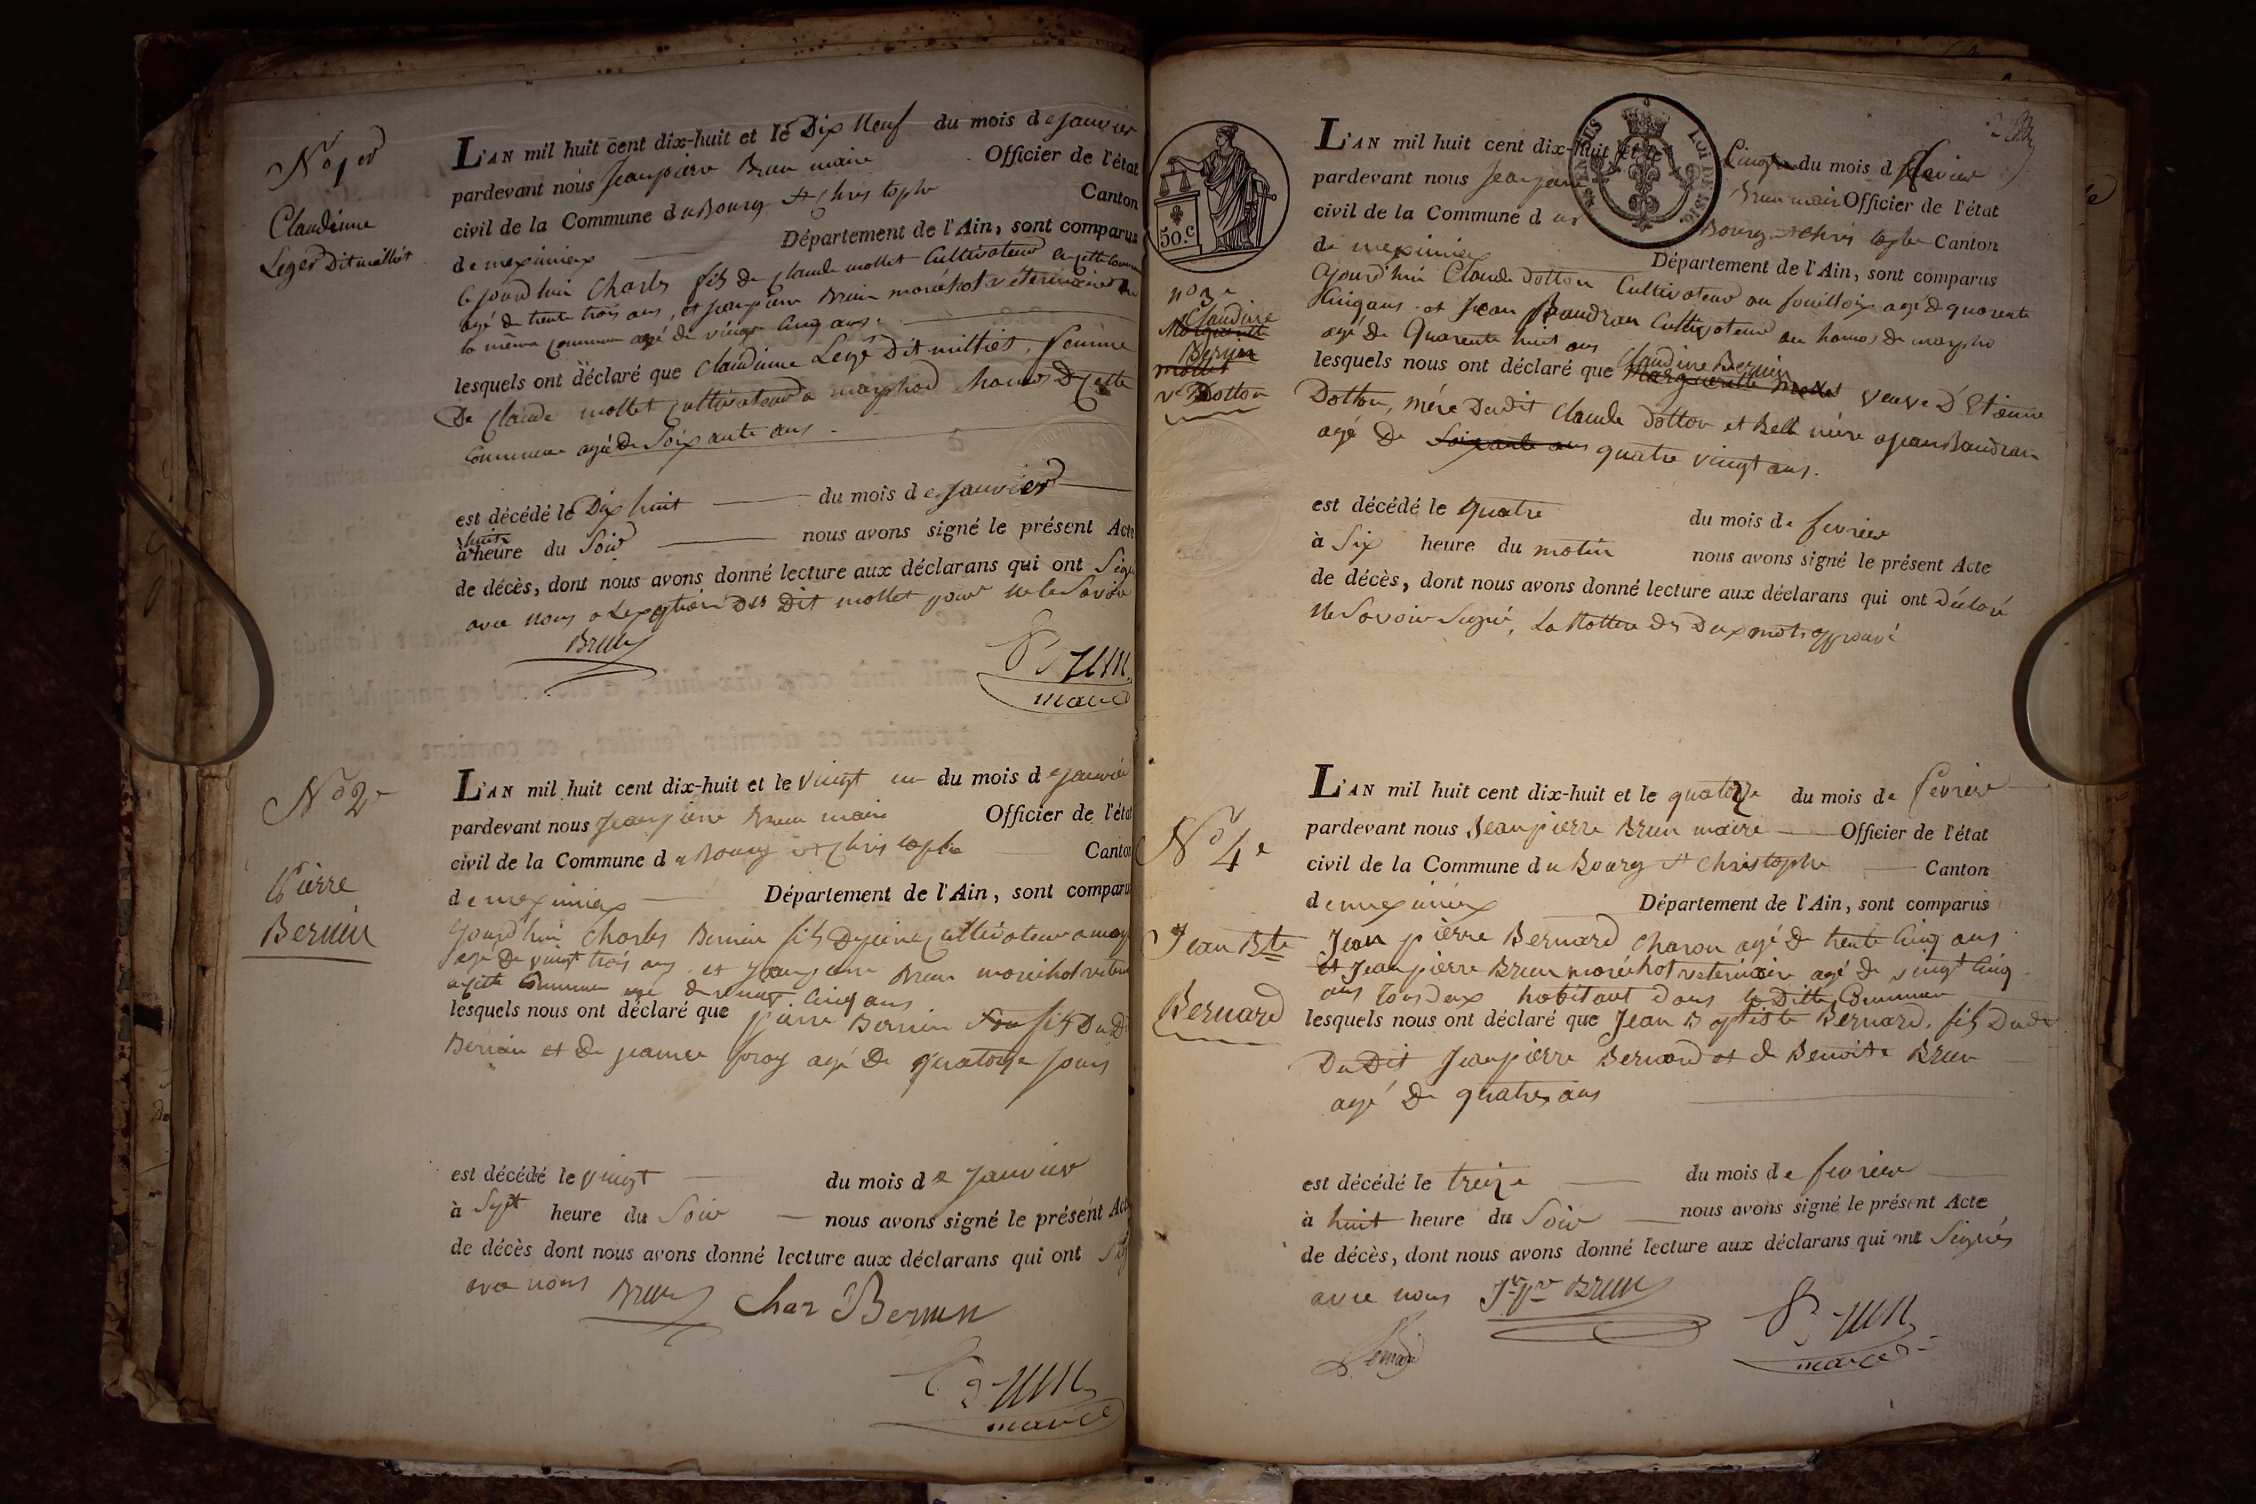 No 1er
Claudinne
Leger Dit milliet
L'AN mil huit cent dix-huit et le Dix Neuf du mois de Janvier
pardevant nous Jeanpierre Brun maire Officier de l'état
civil de la Commune du Bourg St Christophe Canton
de meximieux Département de l'Ain, sont comparus
Charles fils de Claude mollet Cultivateur
agé de trente trois ans, et jeanpierre Brun maréchal véterinaire
la même commune agé de vingt cinq ans.
lesquels ont déclaré que Claudinne Legé Dit milliet, femme
De Claude mollet Cultivateur a hamos De Cette
Commune agé De Soixante ans.
est décédé le Dix huit du mois de Janvier
huit
à heure du Soir nous avons signé le présent Acte
de décès, dont nous avons donné lecture aux déclarans qui ont Signé
avec nous a Lexeption Du Dit mollet pour ne le Savoir
Brun
Brun
maire
No 2e
Pierre
Bernin
L'AN mil huit cent dix-huit et le vingt un du mois de janvier
pardevant nous Jeanpierre Brun maire Officier de l'état
civil de la Commune du Bourg St Christophe Canton
de meximieux Département de l'Ain, sont comparus
Charles Bernin fils De pierre Cultivateur
agé De vingt trois ans et Jeanpierre Brun maréchal
Commune agé de vingt Cinq ans
lesquels nous ont déclaré que pierre Bernin fils Du Dt
Bernin et De jeanne foray agé De quatorze jours
est décédé le vingt du mois de Janvier
à Sept heure du Soir nous avons signé le présent Acte
de décès dont nous avons donné lecture aux déclarans qui ont
avec nous Brun Char Bernin
Brun
maire
50.C
LOI DE 1816
no 3e
Claudine
Marguerite
Bernin
mollet
ve Dotton
L'AN mil huit cent dix-huit et le Cinq du mois de fevrier
pardevant nous Jeanpierre Brun maire Officier de l'état
civil de la Commune du Bourg St Christophe Canton
de meximieux Département de l'Ain, sont comparus
Claude Dotton Cultivateur agé de quarente
Cinq ans et Jean Baudran Cultivateur au hamos de
agé De Quarente huit ans
Claudine Bernin
lesquels nous ont déclaré que Marguerite Mollet veuve D'Etienne
Dotton, mére Dudit Claude Dotton et Belle mère a Jean Baudran
agé De Soixante ans quatre vingt ans.
est décédé le quatre du mois de fevrier
à Six heure du matin nous avons signé le présent Acte
de décès, dont nous avons donné lecture aux déclarans qui ont déclaré
Ne Savoir Signé,
No 4e
Jean Bte
Bernard
L'AN mil huit cent dix-huit et le quatorze du mois de fevrier
pardevant nous Jeanpierre Brun maire Officier de l'état
civil de la Commune du Bourg St Christophe Canton
de meximieux Département de l'Ain, sont comparus
Jean pierre Bernard Charon agé De trente Cinq ans
et Jeanpierre Brun maréchal veterinaire agé de vingt Cinq
ans tous deux habitant dans la Ditte Commune
lesquels nous ont déclaré que Jean Baptiste Bernard, fils
Du Dit Jeanpierre Bernard et de Benoite Brun
agé De quatre ans
est décédé le treize du mois de fevrier
à huit heure du Soir nous avons signé le présent Acte
de décès, dont nous avons donné lecture aux déclarans qui ont Signés
avec nous Jn pre Brun
Bernard
Brun
maire